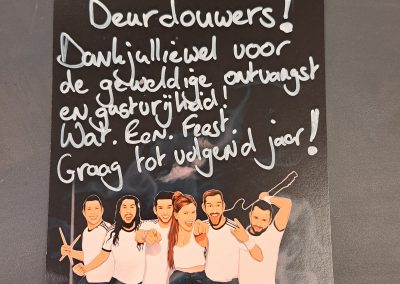 Deurdouwers!
Dankjulliewel voor
de geweldige ontvangst
en gastvrijheid!
Wat. Een. Feest.
Graag tot volgend jaar!